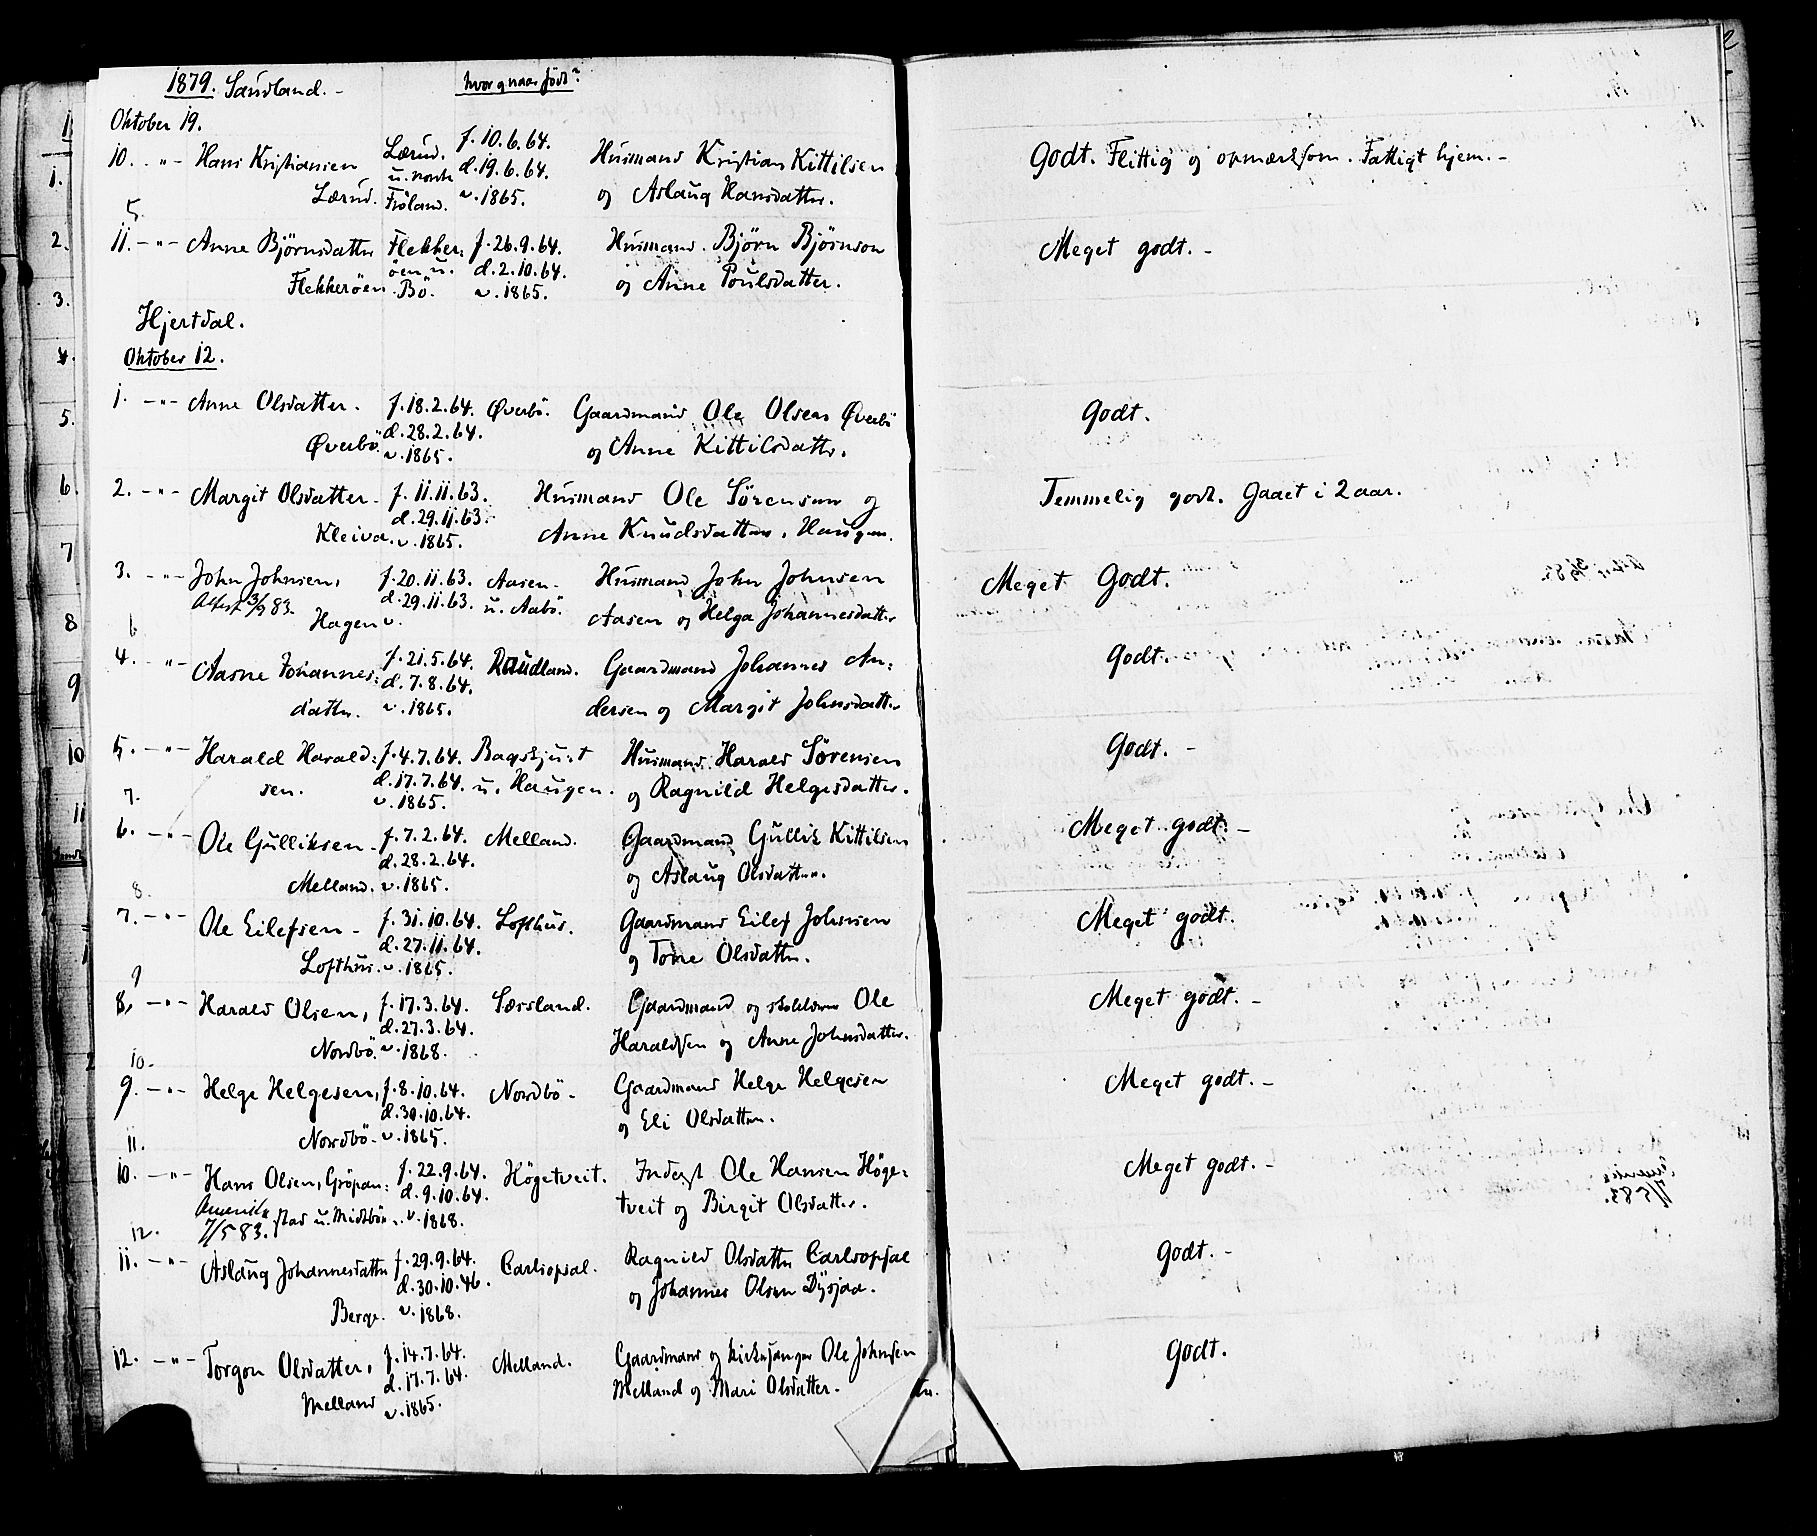 1879. Sauland. -
hvor og naar född?
Oktober 19.
10. - " - Hans Kristiansen Lærud.
Lærud. u. nordre Frøland.
f. 10.6.64.
d. 19.6.64.
v. 1865.
Husmand Kristian Kittilsen
og Aslaug Hansdatter.
Godt. Flittig og opmærksom. Fattigt hjem. -
11. - " - Anne Björnsdatter Flekkeröen
Flekker:
öen u.
Bö.
f. 26.9.64.
d. 2.10.64.
v. 1865.
Husmand Björn Björnson
og Anne Poulsdatter.
Meget godt. -
Hjertdal.
Oktober 12.
1. - " - Anne Olsdatter. Øverbö
f. 18.2.64. Øverbö.
d. 28.2.64.
v. 1865.
Gaardmand Ole Olsen Øverbö
og Anne Kittilsdatter.
Godt.
2. - " - Margit Olsdatter - Kleiva
f. 11.11.63.
d. 29.11.63.
v. 1865.
Husmand Ole Sörensen og
Anne Knudsdatter, Haugen.
Temmelig godt. Gaaet i 2 aar.
3. - " - John Johnsen,
Attest 3/9 83.
Hagen
f. 20.11.63. Aasen
d. 29.11.63. u. Aabö.
v.
Husmand John Johnsen
Aasen og Helga Johannesdatter
Meget Godt.
4. - " - Aasne Johannes:
datter.
f. 21.5.64. Raudland.
d. 7.8.64.
v. 1865.
Gaardmand Johannes An:
dersen og Margit Johnsdatter
Godt. -
5. - " - Harald Harald:
sen.
f. 4.7.64. Bagskjust
d. 17.7.64. u. Haugen.
v. 1865.
Husmand Harald Sörensen
og Ragnild Helgesdatter.
Godt. -
6. - " - Ole Gulliksen -
Melland.
f. 7.2.64. Melland.
d. 28.2.64.
v. 1865.
Gaardmand Gullik Kittilsen
og Aslaug Olsdatter.
Meget godt. -
7. - " - Ole Eilefsen -
Lofthus.
f. 31.10.64. Lofthus.
d. 27.11.64.
v. 1865.
Gaardmand Eilef Johnsen
og Tone Olsdatter.
Meget godt.
8. - " - Harald Olsen,
Nordbö.
f. 17.3.64. Særsland.
d. 27.3.64.
v. 1868.
Gaardmand og Ole
Haraldsen og Anne Johnsdatter.
Meget godt. -
9. - " - Helge Helgesen,
Nordbö.
f. 8.10.64. Nordbö -
d. 30.10.64.
v. 1865.
Gaardmand Helge Helgesen
og Eli Olsdatter.
Meget godt. -
10. - " - Hans Olsen, Gröpan:
stad u. Midtböen.
Amerika
7/5 83.
f. 22.9.64. Högetveit.
d. 9.10.64.
v. 1868.
Inderst Ole Hansen Höge:
tveit og Birgit Olsdatter.
Meget godt. -
11. - " - Aslaug Johannesdatter
Berge.
f. 29.9.64. Carlsopsal.
d. 30.10.46.
v. 1868.
Ragnild Olsdatter Carlsopsal
og Johannes Olsen Dysjaa.
Godt. -
12. - " - Torgon Olsdatter,
Melland
f. 14.7.64. Melland.
d. 17.7.64.
v. 1865.
Gaardmand og kirkesanger Ole Johnsen
Melland og Mari Olsdatter.
Godt.